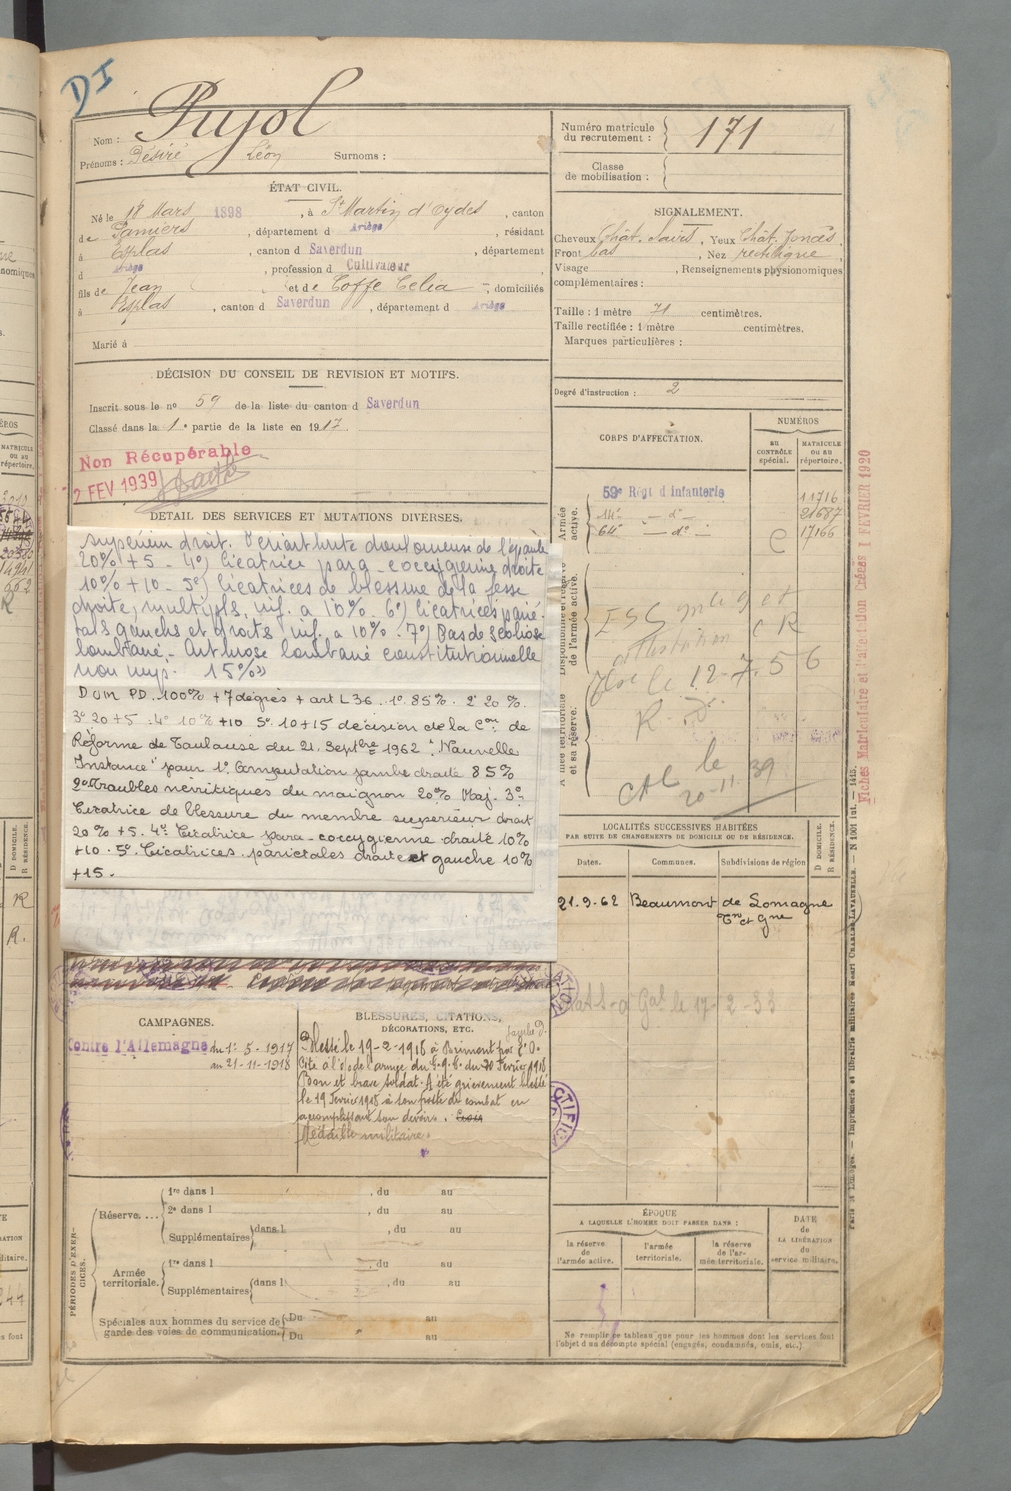 DI
Nom : Pujol
Prénoms : Désiré Léon Surnoms :
ÉTAT CIVIL.
Né le 18 Mars 1898, à St Martin d'Oydes, canton
de Pamiers, département d Ariège, résidant
à Esplas, canton d Saverdun, département
d Ariège, profession d Cultivateur
fils de Jean et de Toffe Celia, domiciliés
à Esplas, canton d Saverdun, département d Ariège
Marié à
DÉCISION DU CONSEIL DE REVISION ET MOTIFS.
Inscrit sous le no 59 de la liste du canton d Saverdun
Classé dans la 1e partie de la liste en 1917.
Non Récupérable
2 FEV 1939
DÉTAIL DES SERVICES ET MUTATIONS DIVERSES.
supérieur droit. Périarthrite douloureuse de l'épaule
20% + 5 - 4°) Cicatrice para-coccygienne droite
10% + 10 - 5°) Cicatrices de blessure de la fesse
droite, multiples, inf. à 10% - 6°) Cicatrices parié-
tales gauche et droite inf. à 10% - 7°) Pas de scoliose
lombaire. Arthrose lombaire constitutionnelle
non imp. 15%"
P.D. 100% + 7 degrés + art L 36. 1° 85% . 2° 20 %.
3° 20 + 5 . 4° 10% + 10 5° 10 + 15 décision de la Con de
Réforme de Toulouse du 21 Septbre 1962 : "Nouvelle
Instance" pour 1°. Amputation jambe droite 85%
2° Troubles névritiques du moignon 20% Maj. 3°-
Cicatrice de blessure du membre supérieur droit
20% + 5. 4° Cicatrice para-coccygienne droite 10%
+ 10 . 5°. Cicatrices pariétales droite et gauche 10%
+ 15 .
CAMPAGNES.
Contre l'Allemagne du 1er 5 - 1917
au 21-11-1918
BLESSURES, CITATIONS,
DÉCORATIONS, ETC.
jambe d.
Blessé le 19-2-1918 à Brimont par E.O.
Cité à l'o/ de l'armée du G.Q.G. du 20 Février 1918
Bon et brave soldat. A été grièvement blessé
le 19 Février 1918 à son poste de combat en
accomplissant son devoir. Croix
Médaille militaire.
PÉRIODES D'EXERCICES.
Réserve....
1re dans l , du au
2e dans l , du au
Supplémentaires dans l , du au
Armée territoriale.
1re dans l , du au
Supplémentaires dans l , du au
Spéciales aux hommes du service de garde des voies de communication.
Du au
Du au
Numéro matricule du recrutement : 171
Classe de mobilisation :
SIGNALEMENT.
Cheveux Chât. , Yeux Chât. foncés.
Front bas, Nez rectiligne,
Visage , Renseignements physionomiques
complémentaires :
Taille : 1 mètre 71 centimètres.
Taille rectifiée : 1 mètre centimètres.
Marques particulières :
Degré d'instruction : 2
CORPS D'AFFECTATION.
NUMÉROS
AU CONTRÔLE spécial.
MATRICULE ou au répertoire.
Armée active.
59e Régt d'Infanterie 11716
14e — do — 21687
64e — do — C 17166
Disponibilité et réserve de l'armée active.
le 12-7.56
Armée territoriale et sa réserve.
le
20-11-39
LOCALITÉS SUCCESSIVES HABITÉES
PAR SUITE DE CHANGEMENTS DE DOMICILE OU DE RÉSIDENCE.
Dates. Communes. Subdivisions de région
D DOMICILE.
R RÉSIDENCE.
21.9-62 Beaumont de Lomagne
Tn et Gne
le 17-2-33
ÉPOQUE
A LAQUELLE L'HOMME DOIT PASSER DANS :
la réserve de l'armée active.
l'armée territoriale.
la réserve de l'armée territoriale.
DATE de LA LIBÉRATION du service militaire.
Ne remplir ce tableau que pour les hommes dont les services font
l'objet d'un décompte spécial (engagés, condamnés, omis, etc.)
Fiches Matriculaire et d'affectation Créées 1 FEVRIER 1920
Paris et Limoges. — Imprimerie et librairie militaires Henri CHARLES-LAVAUZELLE.